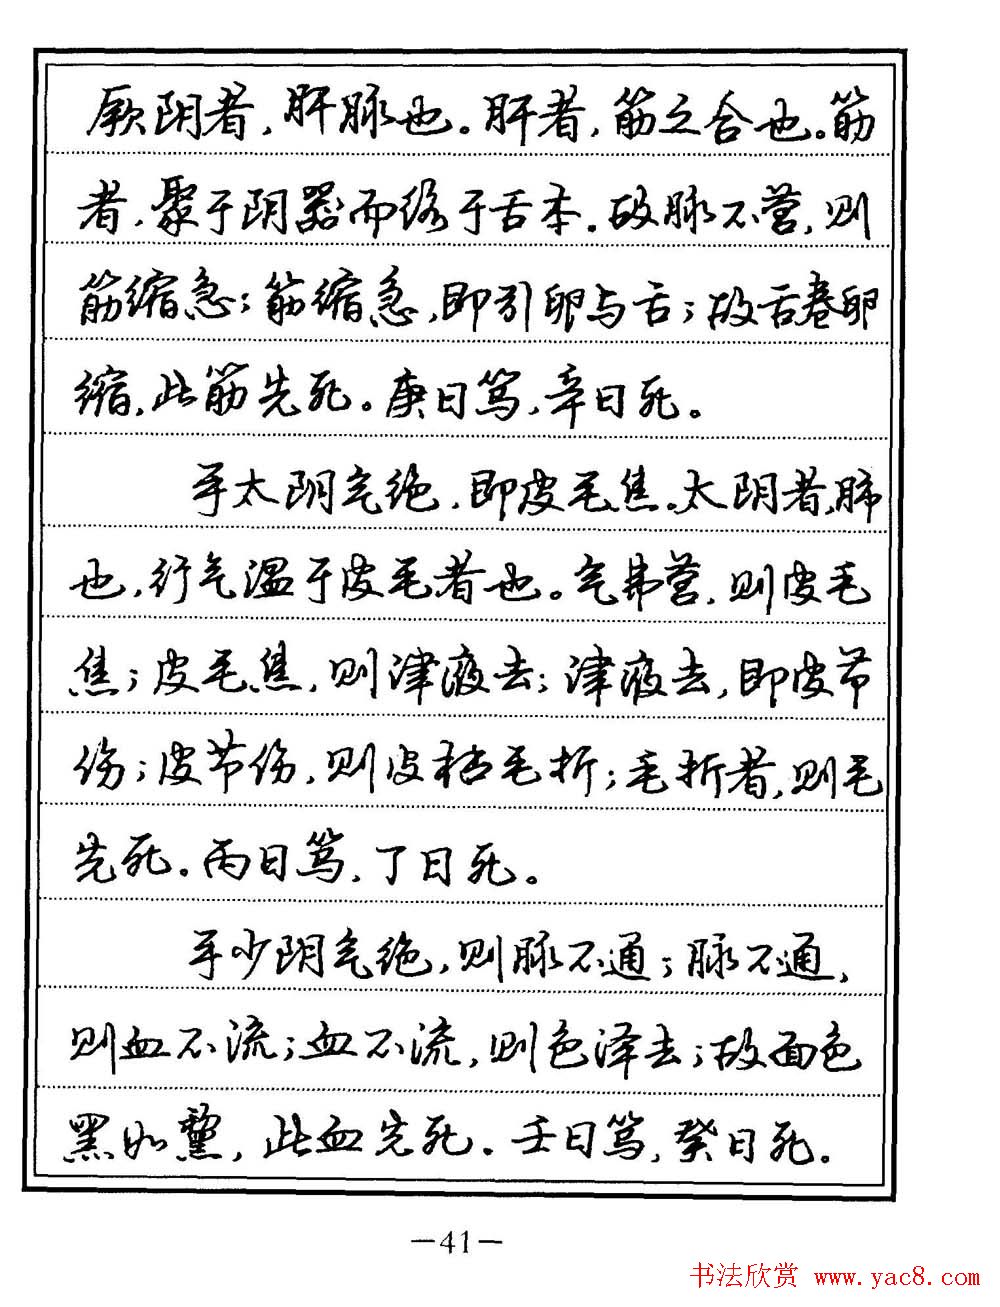 厥阴者，肝脉也。肝者，筋之合也。筋
者，聚于阴器而络于舌本。故脉不营，则
筋缩急；筋缩急，即引卵与舌；故舌卷卵
缩，此筋先死。庚日笃，辛日死。
手太阴气绝，即皮毛焦。太阴者，肺
也，行气温于皮毛者也。气弗营，则皮毛
焦；皮毛焦，则津液去；津液去，即皮节
伤；皮节伤，则皮枯毛折；毛折者，则毛
先死。丙日笃，丁日死。
手少阴气绝，则脉不通；脉不通，
则血不流；血不流，则色泽去；故面色
黑如黧，此血先死。壬日笃，癸日死。
—41—
书法欣赏 www.yac8.com